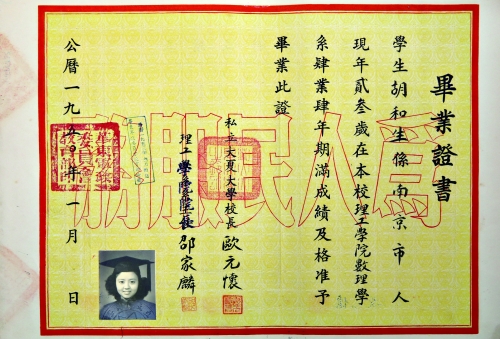 畢業證書
學生胡和生係南京市人
現年貳叁歲在本校理工學院數理學
系肆業肆年期滿成績及格准予
畢業此證
私立大夏大學校長 歐元懷
理工學院院長 邵家麟
公曆一九五〇年一月 日
為人民服務